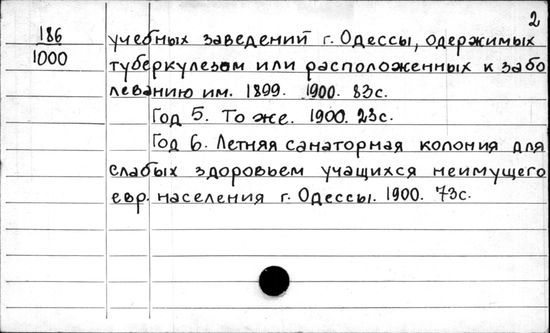 2
186
1000
учебных заведений г. Одессы, одержимых
туберкулезом или расположенных к забо
леванию им. 1899. 1900. 83с.
Год 5. То же. 1900. 23с.
Год 6. Летняя санаторная колония для
слабых здоровьем учащихся неимущего
евр. населения г. Одессы. 1900. 73с.